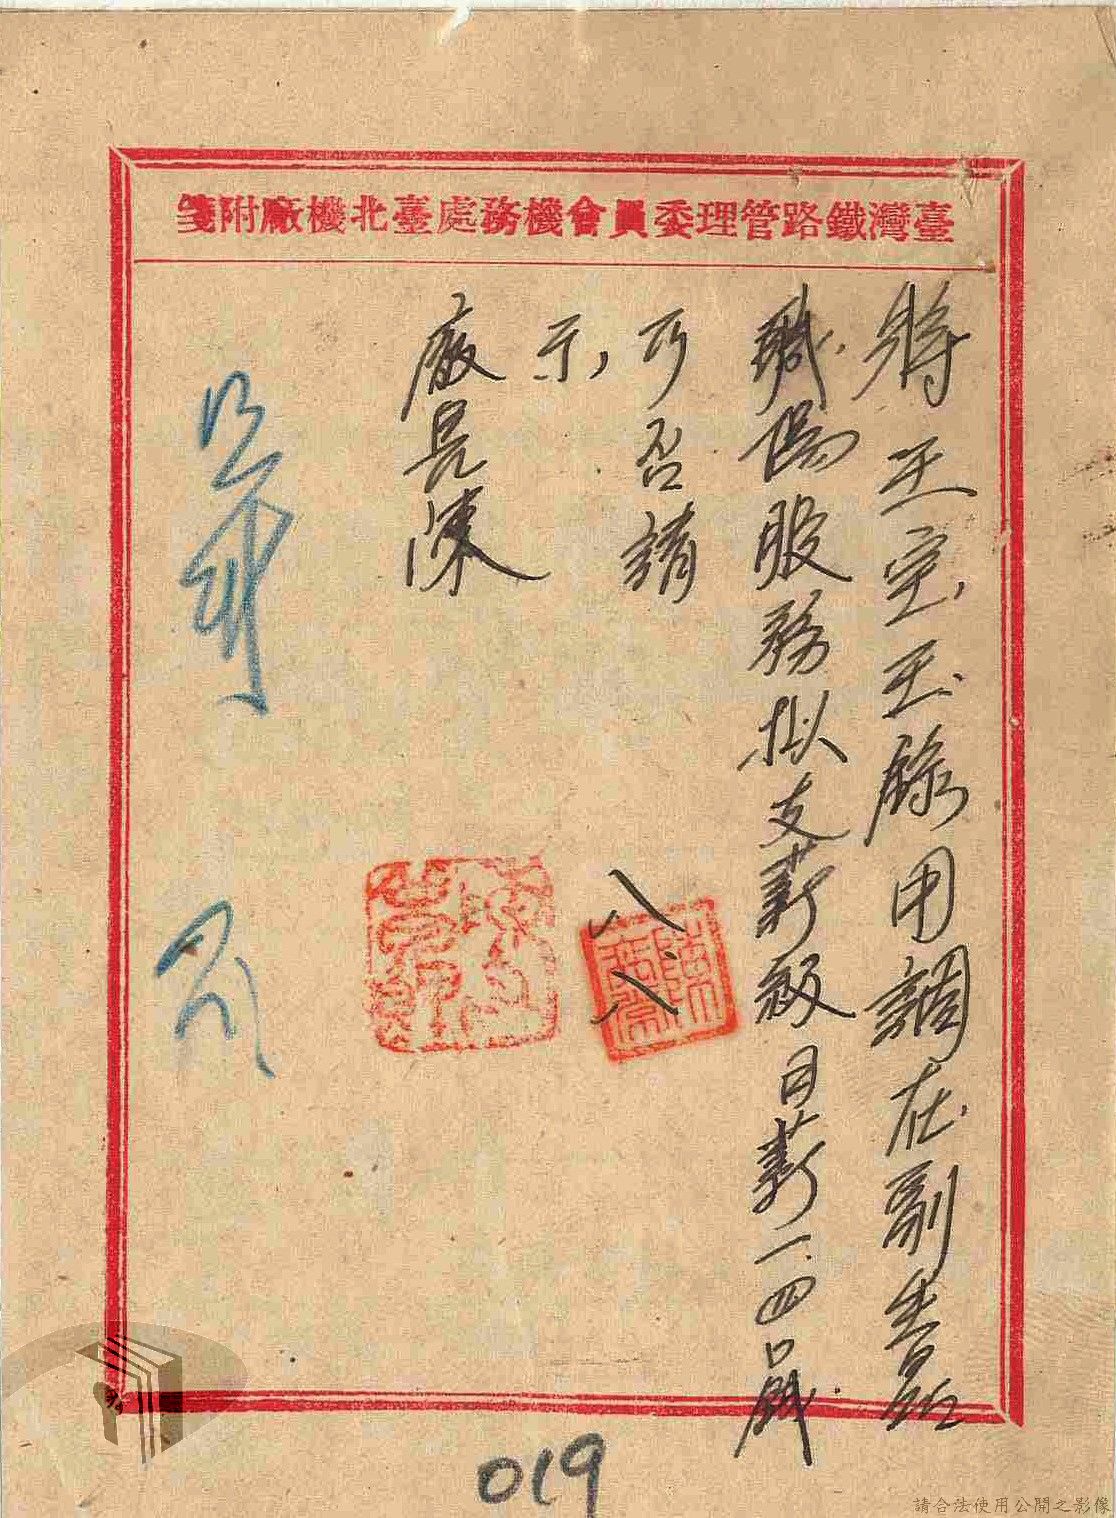 臺灣鐵路管理委員會機務處臺北機廠附箋
將王宝玉錄用調在副產品
職場服務拟支薪級日薪一.四〇錢
可否請
示,
廠長陳
八、八
019
請合法使用公開之影像